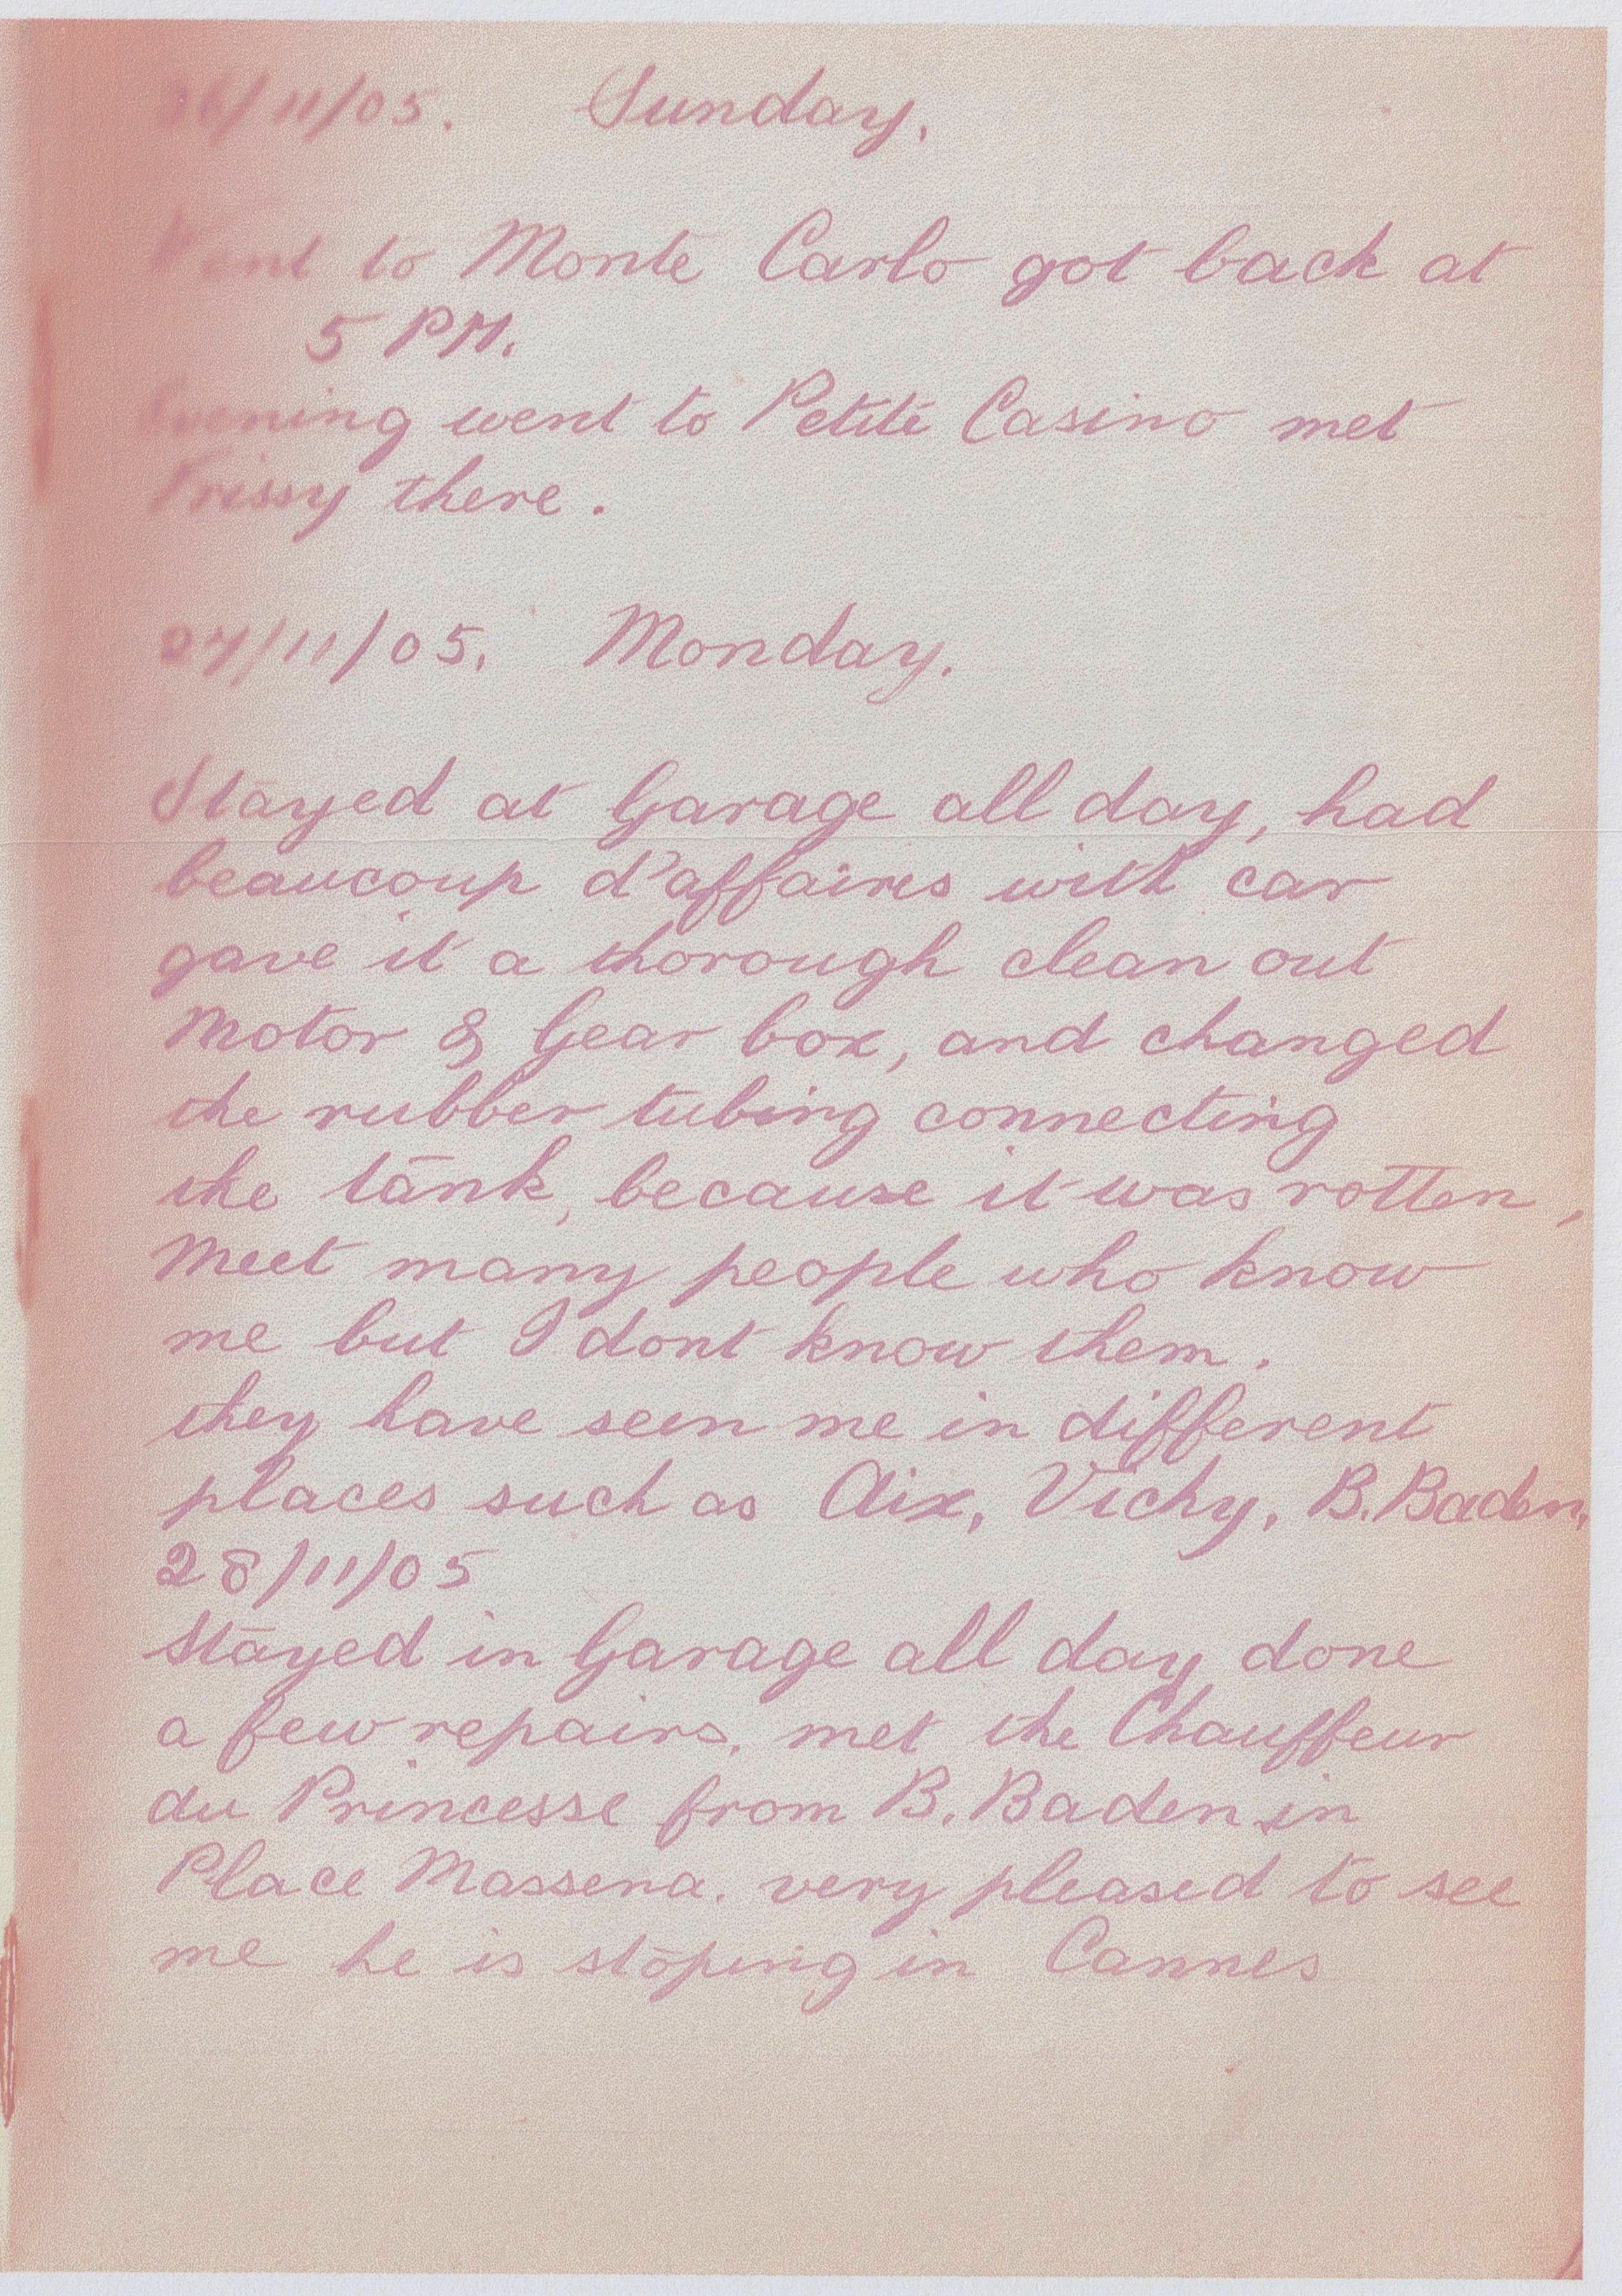 26/11/05. Sunday.
Went to Monte Carlo got back at
5 PM.
Evening went to Petite Casino met
Frissy there.
27/11/05. Monday.
Stayed at Garage all day, had
beaucoup d'affaires with car
gave it a thorough clean out
Motor & Gear box, and changed
the rubber tubing connecting
the tank, because it was rotten,
Meet many people who know
me but I dont know them.
they have seen me in different
places such as Aix, Vichy, B. Baden,
28/11/05
Stayed in Garage all day done
a few repairs. met the Chauffeur
du Princesse from B. Baden in
Place Massena. very pleased to see
me he is stoping in Cannes